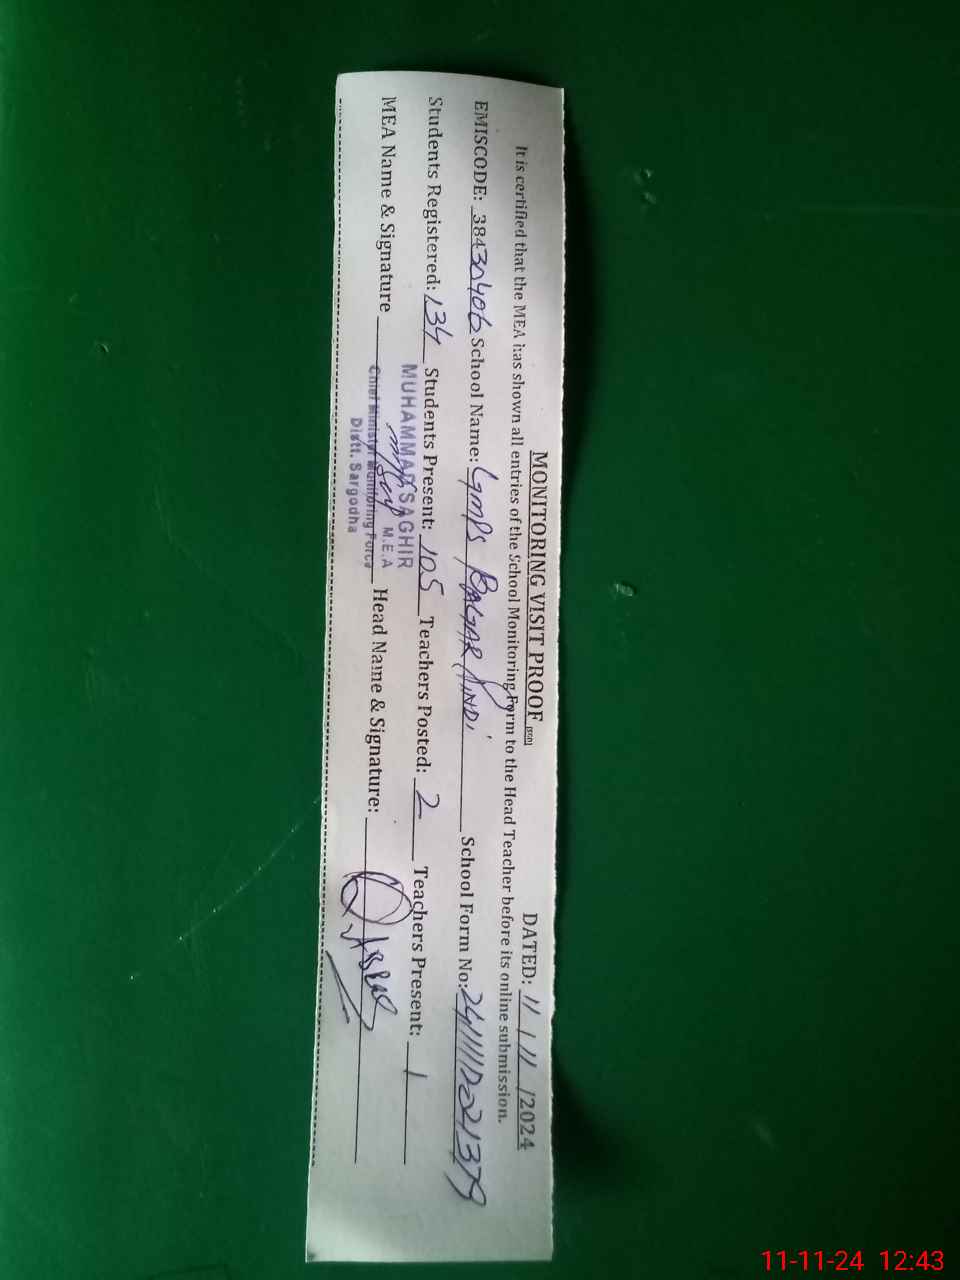 MONITORING VISIT PROOF DATED: 11 / 11 /2024
It is certified that the MEA has shown all entries of the School Monitoring Form to the Head Teacher before its online submission.
EMISCODE: 38430406 School Name: GMPS, BAGAR PINDI School Form No:
Students Registered: 134 Students Present: 105 Teachers Posted: 2 Teachers Present: 1
MEA Name & Signature Head Name & Signature:
MUHAMMAD SAGHIR
M.E.A
Chief Minister Monitoring Force
Distt. Sargodha
11-11-24 12:43